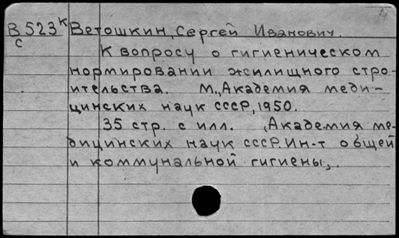 В523к Ветошкин, Сергей Иванович.
с К вопросу о гигиеническом
нормировании жилищного стро-
ительства. М., Академия меди-
цинских наук СССР, 1950.
35 стр. с илл. (Академия ме-
дицинских наук СССР. Ин-т общей
и коммунальной гигиены).